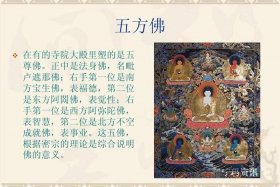 五方佛
在有的寺院大殿里塑的是五
尊佛。正中是法身佛,名毗
卢遮那佛;右手第一位是南
方宝生佛,表福德,第二位
是东方阿閦佛,表觉性;右
手第一位是西方阿弥陀佛,
表智慧,第二位是北方不空
成就佛,表事业。这五佛,
根据密宗的理论是综合说明
佛的意义。